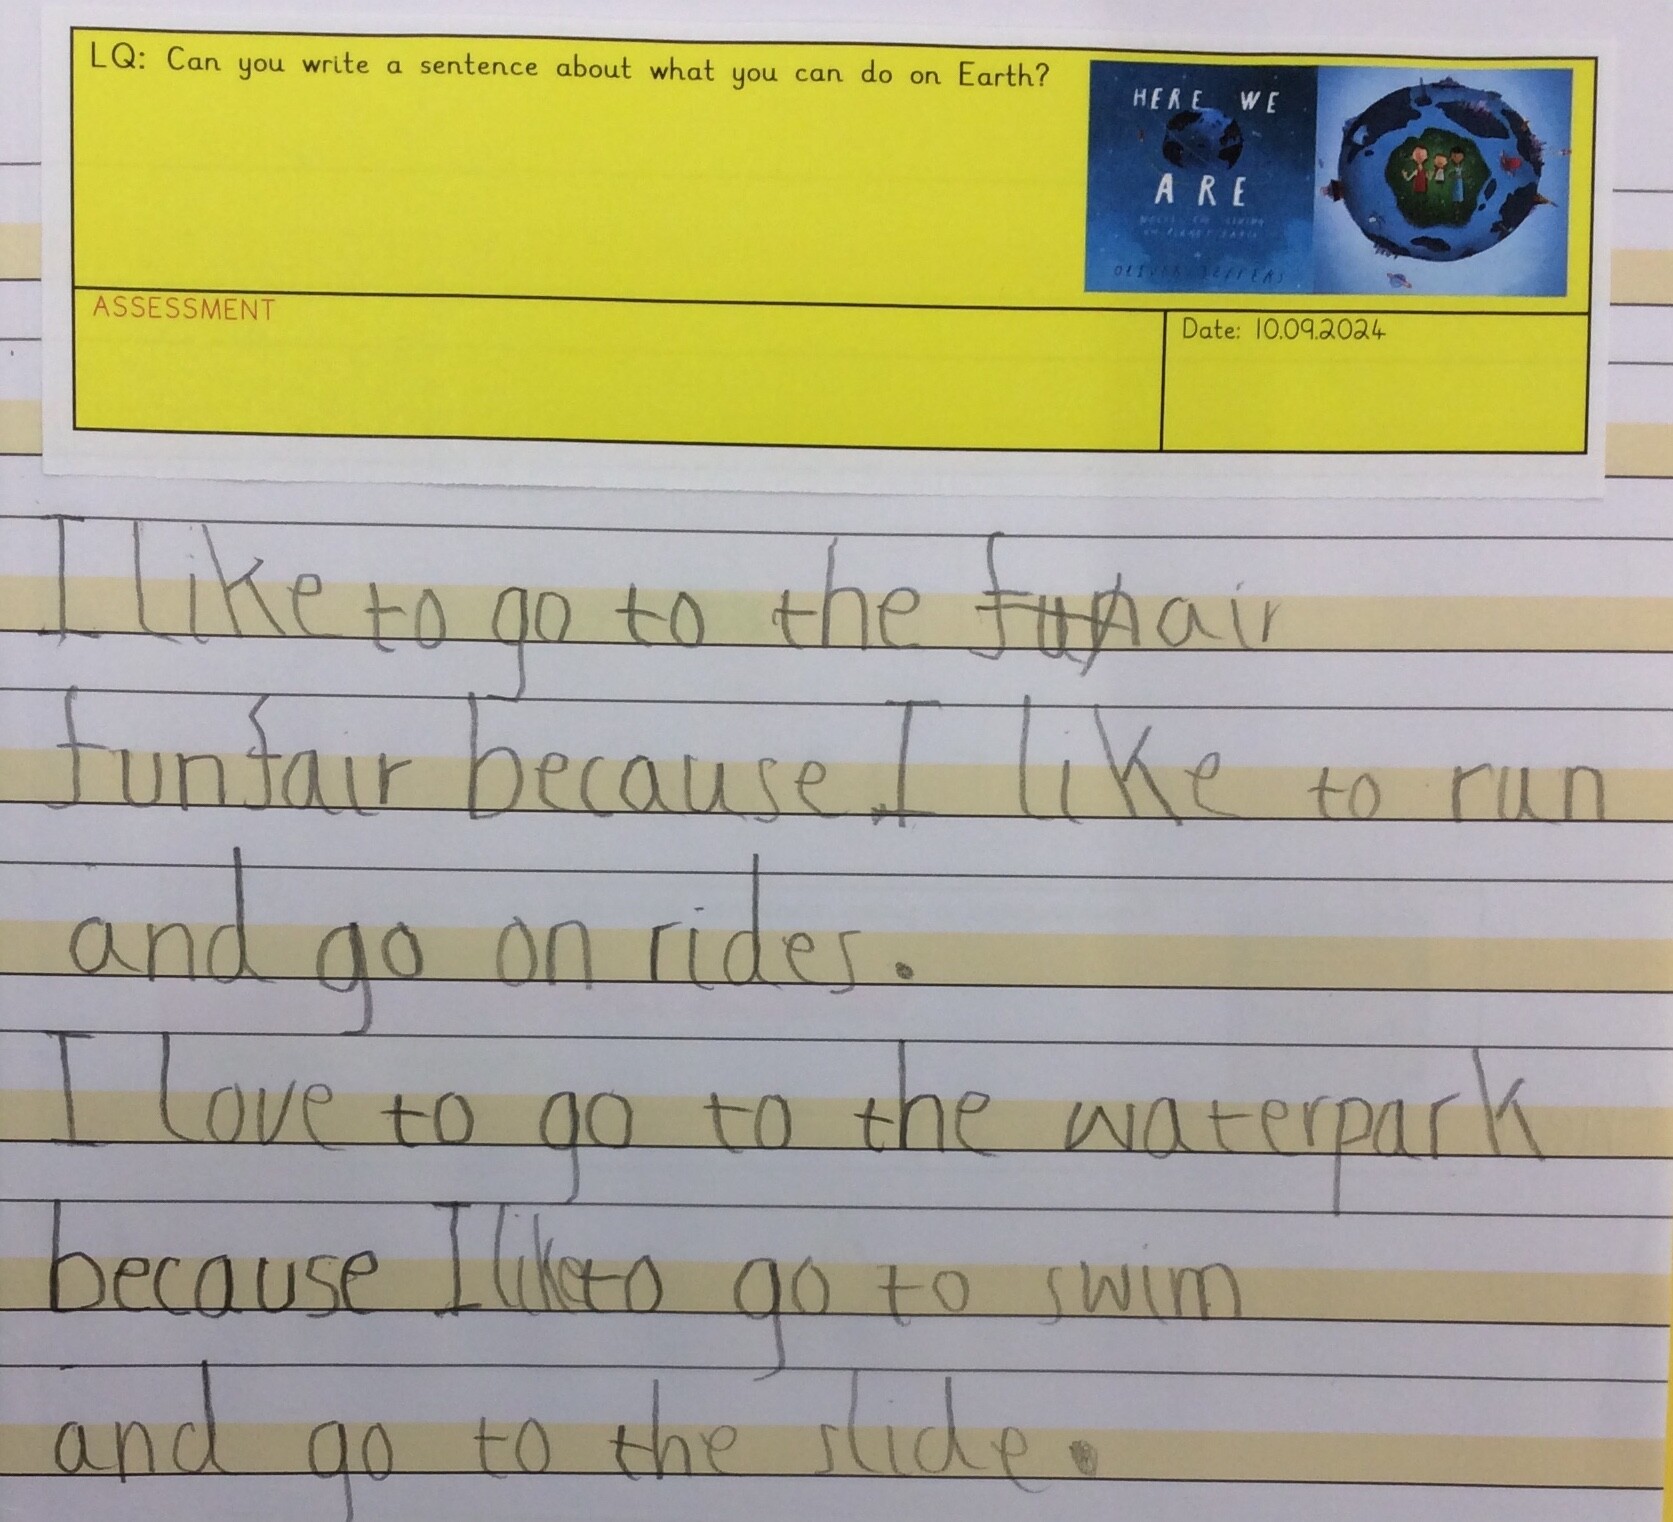 LQ: Can you write a sentence about what you can do on Earth?
HERE WE
ARE
OLIVER JEFFERS
ASSESSMENT
Date: 10.09.2024
I like to go to the funair
funfair because I like to run
and go on rides.
I love to go to the waterpark
because I like to go to swim
and go to the slide.